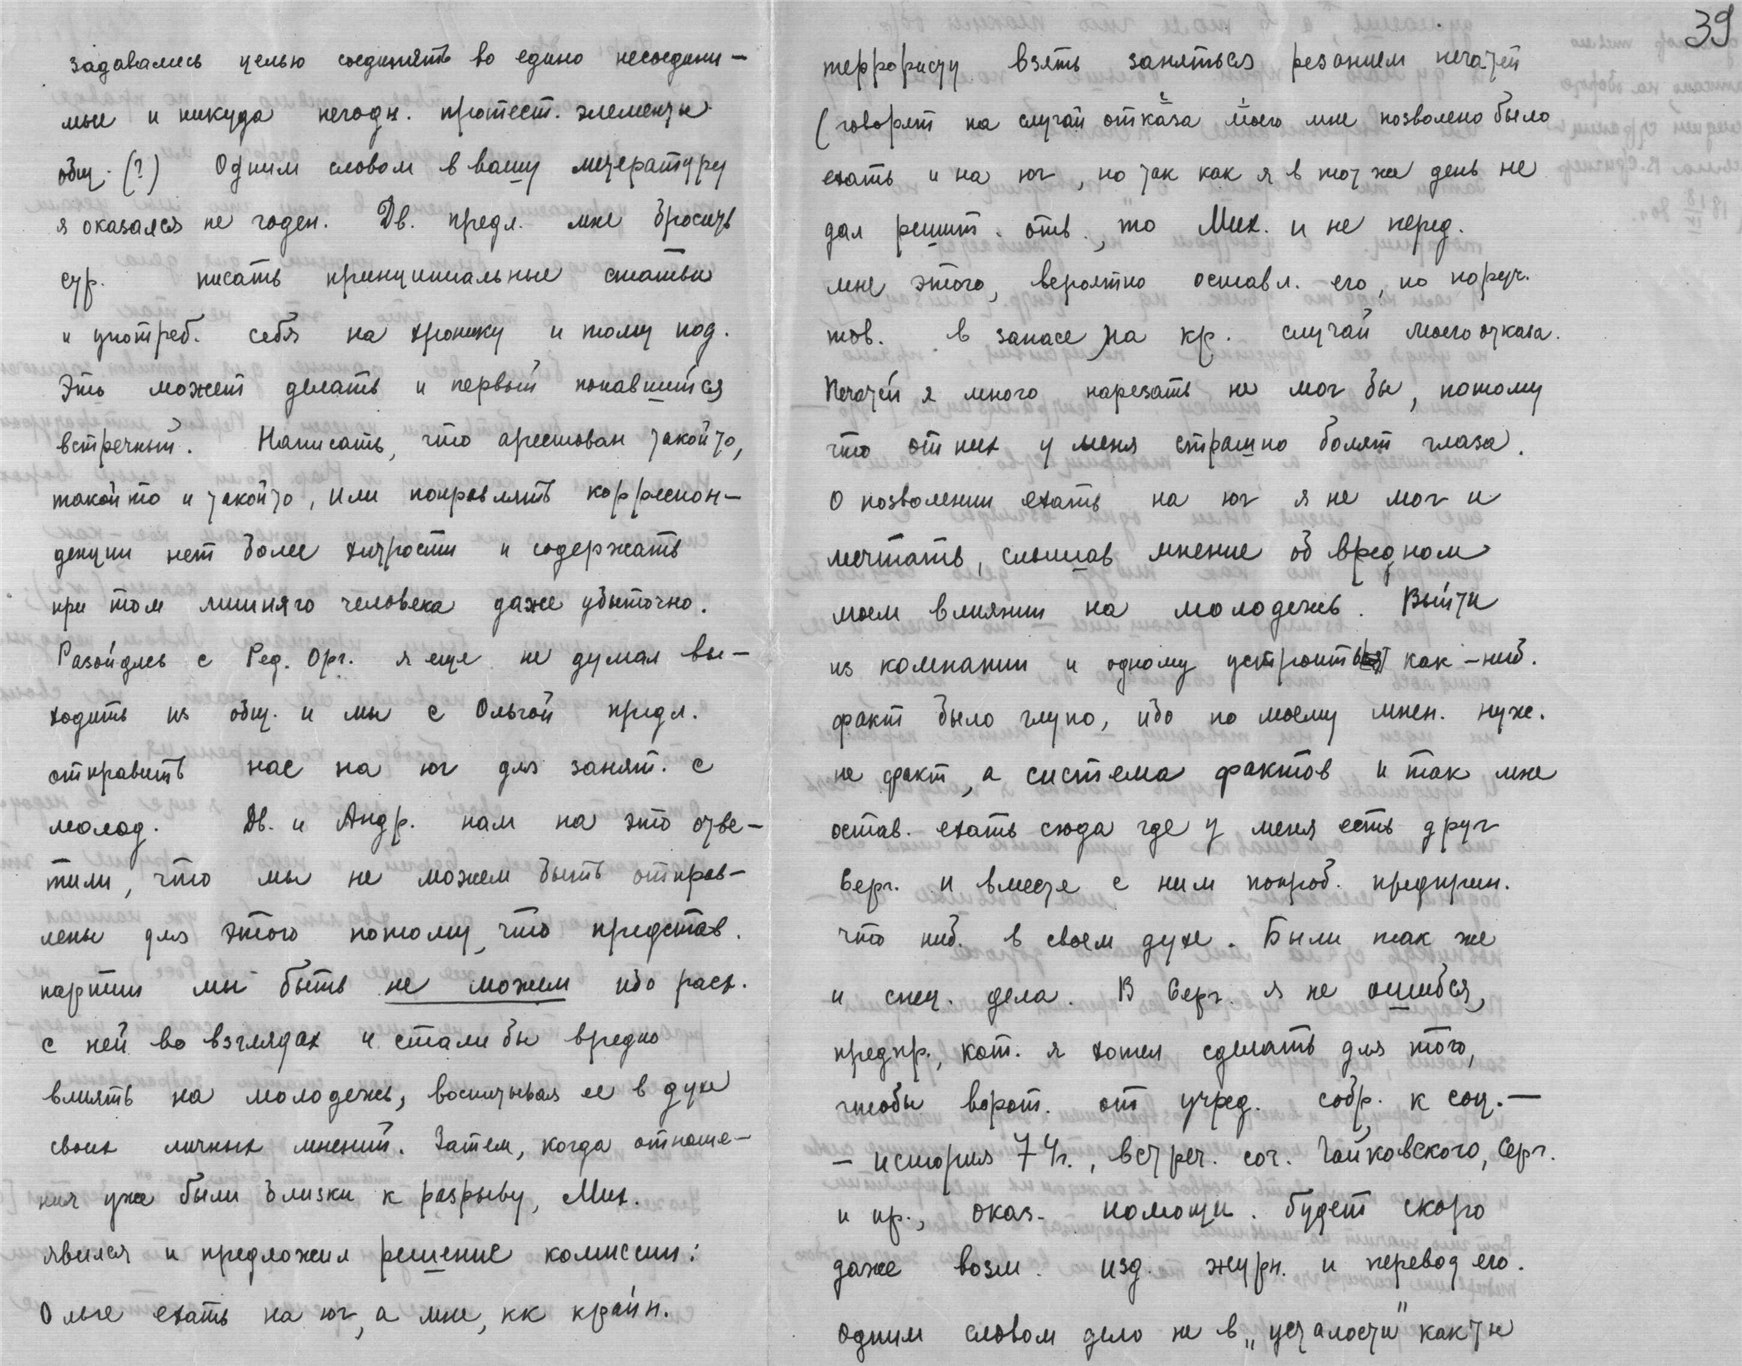 задавались целью соединять во едино несоедини-
мые и никуда негодн. протест. элементы
общ. (?) Одним словом в вашу литературу
я оказался не годен. Дв. предл. мне бросить
сур. писать принципиальные статьи
и употреб. себя на хронику и тому под.
Это может делать и первый попавшийся
встречный. Написать, что арестован такой то,
такой то и такой то, или поправлять корреспон-
денции нет более хитрости и содержать
при том лишняго человека даже убыточно.
Разойдясь с Ред. Орг. я еще не думал вы-
ходить из общ. и мы с Ольгой предл.
отправить нас на юг для занят. с
молод. Дв. и Андр. нам на это отве-
тили, что мы не можем быть отправ-
лены для этого потому, что представ.
партии мы быть не можем ибо расх.
с ней во взглядах и стали бы вредно
влиять на молодежь, воспитывая ее в духе
своих личных мнений. Затем, когда отноше-
ния уже были близки к разрыву, Мих.
явился и предложил решение комиссии:
Ольге ехать на юг, а мне, кк крайн.
39
террористу взять заняться резанием печатей
(говорят на случай отказа моего мне позволено было
ехать и на юг, но так как я в тот же день не
дал решит. отв., то Мих. и не перед.
мне этого, вероятно оставл. его, по поруч.
тов. в запасе на кр. случай моего отказа.
Печатей я много нарезать не мог бы, потому
что от них у меня страшно болят глаза.
О позволении ехать на юг я не мог и
мечтать, слышав мнение об вредном
моем влиянии на молодежь. Выйти
из компании и одному устроить как-ниб.
факт было глупо, ибо по моему мнен. нуж.
не факт, а система фактов и так мне
остав. ехать сюда где у меня есть друг
Серг. и вместе с ним попроб. предприн.
что ниб. в своем духе. Были так же
и спец. дела. В Серг. я не ошибся,
предпр., кот. я хотел сделать для того,
чтобы ворот. от учред. собр. к соц. —
— история 74г., встреч. соч. Чайковского, Серг.
и пр., оказ. помощи. Будет скоро
даже возм. изд. журн. и перевод его.
Одним словом дело не в „усталости" как ты